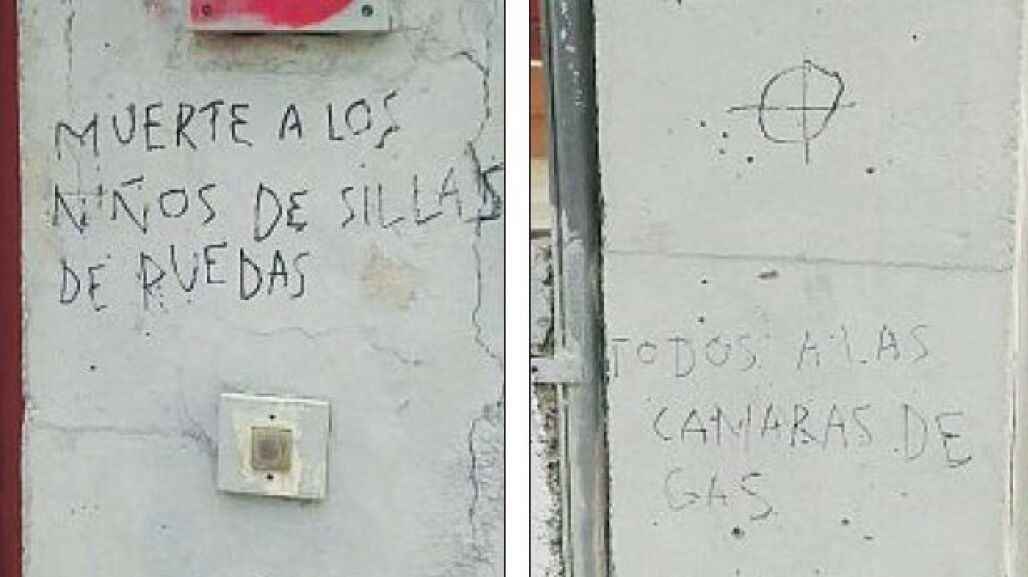 MUERTE A LOS
NIÑOS DE SILLAS
DE RUEDAS
TODOS A LAS
CAMARAS DE
GAS